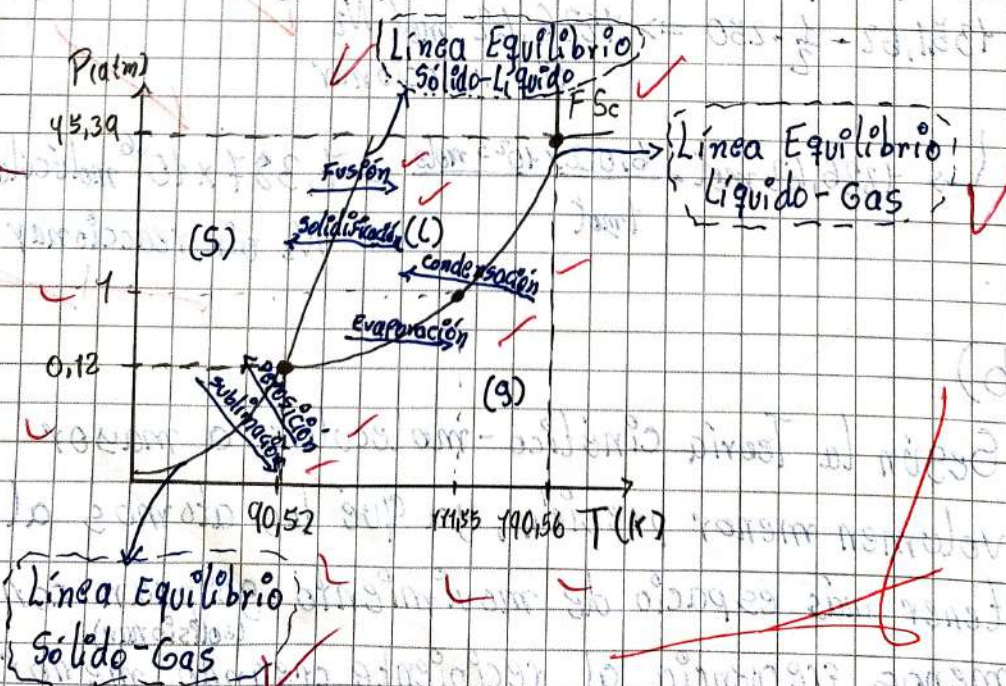 Línea Equilibrio
Sólido-Líquido
P(atm)
45,39
F Sc
Línea Equilibrio
Líquido-Gas
Fusión
Solidificación
(S)
(L)
Condensación
1
Evaporación
0,12
Deposición
Sublimación
(g)
90,52
111,55
190,56
T(K)
Línea Equilibrio
Sólido-Gas